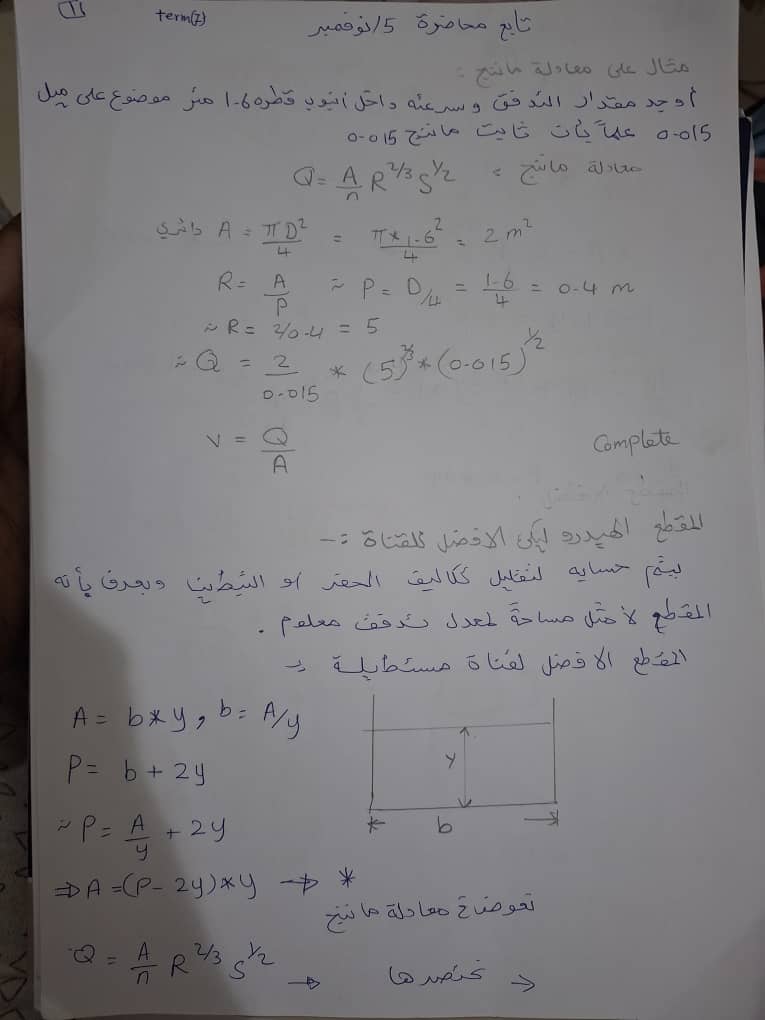 (1)
term(7)
تابع محاضرة 5/نوفمبر
مثال على معادلة ماننج :
أوجد مقدار التدفق وسرعته داخل أنبوب قطره 1-6 متر موضوع على ميل
0-015 علماً بأن ثابت ماننج 0-015
معادلة ماننج : Q = A/n R^2/3 S^1/2
دائري A = πD²/4 = π*1-6²/4 = 2 m²
R = A/P ∴ P = D/4 = 1-6/4 = 0-4 m
∴ R = 2/0-4 = 5
∴ Q = 2/0-015 * (5)^2/3 * (0-015)^1/2
V = Q/A
Complete
المقطع الهيدروليكي الافضل للقناة :-
يتم حسابه لتقليل تكاليف الحفر او التبطين ويعرف بأنه
المقطع لأقل مساحة لمعدل تدفق معلوم .
المقطع الافضل لقناة مستطيلة :-
A = b*y , b = A/y
P = b + 2y
∴ P = A/y + 2y
⇒ A = (P - 2y)*y → *
y
b
نعوضها في معادلة ماننج
Q = A/n R^2/3 S^1/2 → نختصرها →